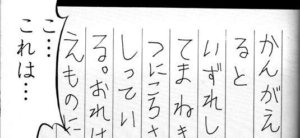 かんがえ
ると
いずれし
てまねき
つにころさ
しってい
る。おれは
えものに
こ…
これは…